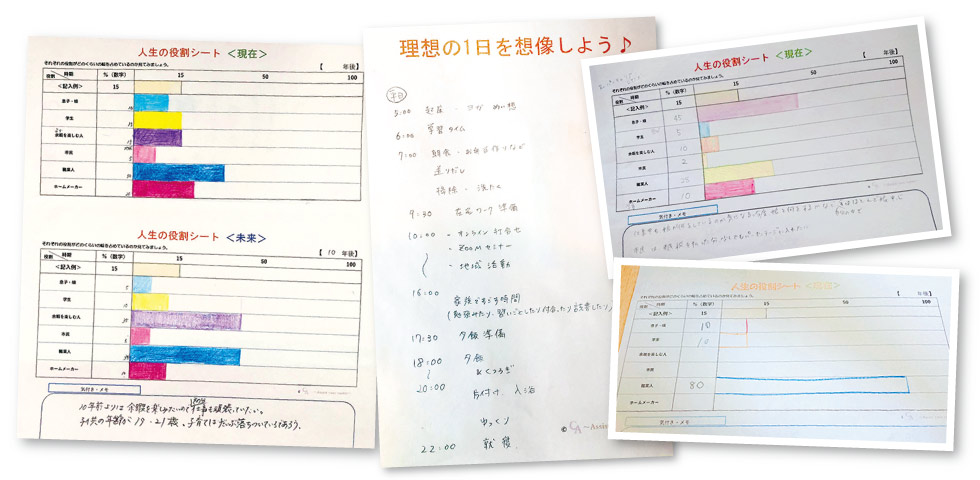 人生の役割シート <現在>
それぞれの役割がどのくらいの幅を占めているのか見てみましょう。
【 年後】
役割 時間 %（数字） 15 50 100
<記入例> 15
息子・娘
学生
余暇を楽しむ人
市民
職業人
ホームメーカー
人生の役割シート <未来>
それぞれの役割がどのくらいの幅を占めているのか見てみましょう。
【 10 年後】
役割 時間 %（数字） 15 50 100
<記入例> 15
息子・娘 5
学生 10
余暇を楽しむ人
市民 5
職業人
ホームメーカー
気付き・メモ
10年前よりは余暇を楽しみたいので仕事も頑張っていたい。
子供の年齢が19・21歳、子育てはだいぶ落ちついているだろう。
理想の1日を想像しよう♪
平日
5:00 起床・ヨガ めい想
6:00 学習タイム
7:00 朝食・お弁当作りなど
送りだし
掃除・洗たく
9:30 在宅ワーク準備
10:00 ・オンライン打合せ
・ZOOMセミナー
・地域活動
16:00 家族ですごす時間
(勉強みたり、習いごとしたり付合ったり読書したり)
17:30 夕飯準備
18:00 夕飯
20:00 片付け 入浴
ゆっくり
22:00 就寝
©
人生の役割シート <現在>
それぞれの役割がどのくらいの幅を占めているのか見てみましょう。
【 年後】
役割 時間 %（数字） 15 50 100
<記入例> 15
息子・娘 35
学生 5
余暇を楽しむ人 10
市民 2
職業人 25
ホームメーカー 10
気付き・メモ
人生の役割シート <現在>
それぞれの役割がどのくらいの幅を占めているのか見てみましょう。
【 年後】
役割 時間 %（数字） 15 50 100
<記入例> 15
息子・娘 10
学生 10
余暇を楽しむ人
市民
職業人 80
ホームメーカー
気付き・メモ